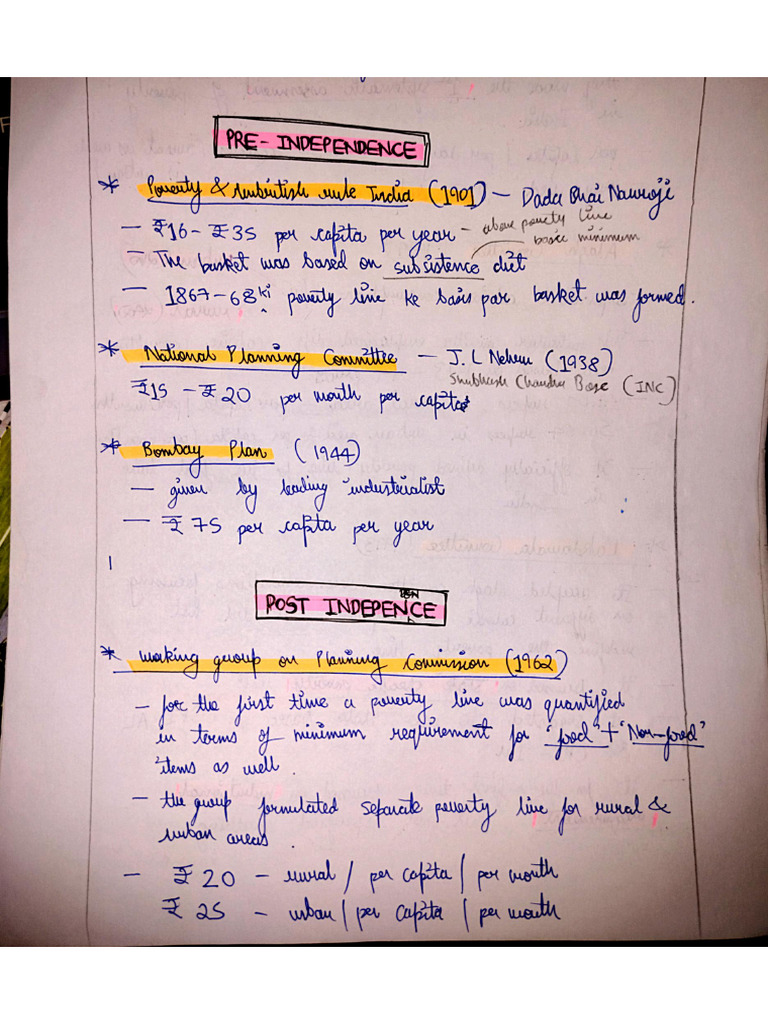 PRE-INDEPENDENCE
* Poverty & Unbritish rule India (1901) - Dada Bhai Nauroji
- ₹16 - ₹35 per capita per year - above poverty line
basic minimum
- The basket was based on subsistence diet
- 1867-68 ki poverty line ke basis par basket was formed.
* National Planning Committee - J.L Nehru (1938)
Shubhash Chandra Bose (INC)
₹15 - ₹20 per month per capita
* Bombay Plan (1944)
- given by leading industrialist
- ₹75 per capita per year
POST INDEPENCE
DEN
* working group on Planning Commission (1962)
- for the first time a poverty line was quantified
in terms of minimum requirement for "food" + "Non-food"
items as well.
- the group formulated separate poverty line for rural &
urban areas.
- ₹20 - rural / per capita / per month
₹25 - urban / per capita / per month